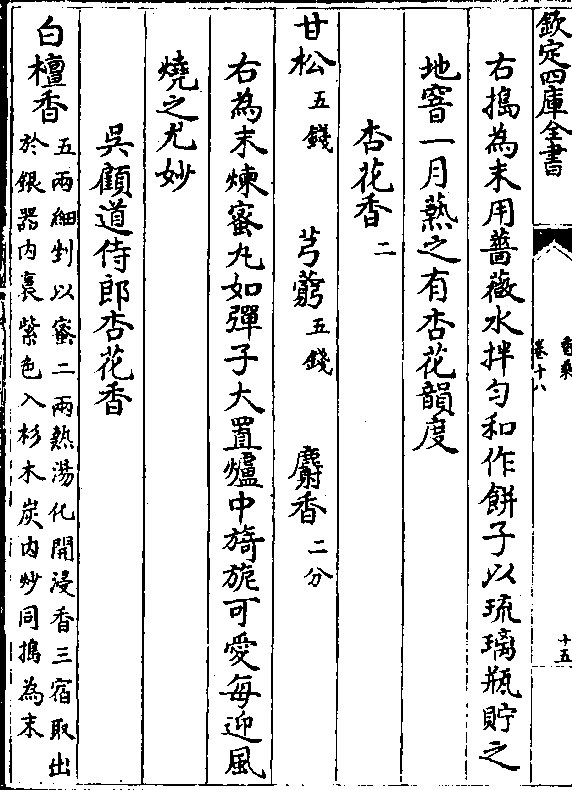 欽定四庫全書
香乘
卷十八
十五
右搗為末用薔薇水拌匀和作餅子以琉璃瓶貯之
地窨一月爇之有杏花韻度
杏花香二
甘松五錢 芎藭五錢 麝香二分
右為末煉蜜丸如彈子大置爐中旖旎可愛每迎風
燒之尤妙
吳顧道侍郎杏花香
白檀香五兩細剉以蜜二兩熱湯化開浸香三宿取出
於銀器内裛紫色入杉木炭内炒同搗為末